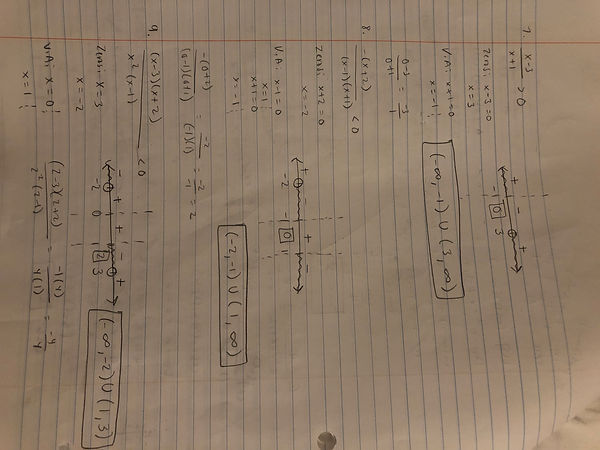 7. (x-3)/(x+1) > 0
Zeros: x-3=0
x=3
V.A: x+1=0
x=-1;
(0-3)/(0+1) = -3/1
+ - +
-1 0 3
(-∞,-1) ∪ (3,∞)
8. -(x+2)/((x-1)(x+1)) < 0
Zeros: x+2=0
x=-2
V.A: x-1=0
x=1;
x+1=0
x=-1;
-(0+2)/((0-1)(0+1)) = -2/((-1)(1)) = -2/-1 = 2
+ - + -
-2 -1 0 1
(-2,-1) ∪ (1,∞)
9. (x-3)(x+2)/(x²(x-1)) < 0
Zeros: x=3
x=-2
V.A: x=0;
x=1;
- + + - +
-2 0 1 2 3
(2-3)(2+2)/(2²(2-1)) = -1(4)/(4(1)) = -4
(-∞,-2) ∪ (1,3)